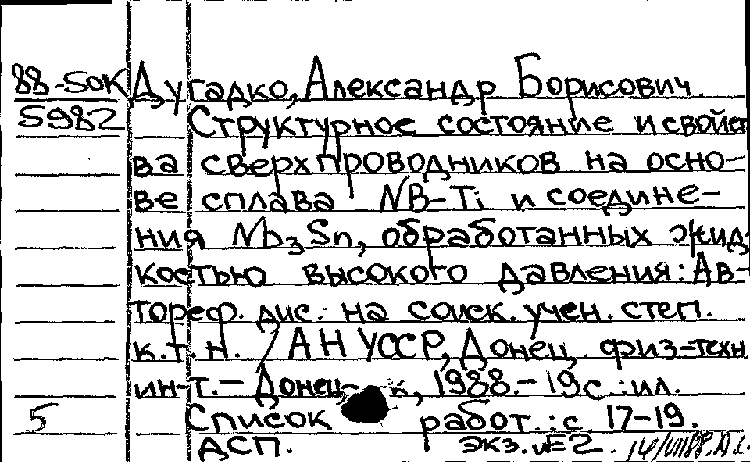 88-50к Дугадко, Александр Борисович.
5982 Структурное состояние и свойст
ва сверхпроводников на осно-
ве сплава NB-Ti и соедине-
ния Nb₃Sn, обработанных жид
костью высокого давления: Ав-
тореф. дис. на соиск. учен. степ.
к.т.н. / АН УССР, Донец. физ-техн.
ин-т. - Донец- к, 1988. - 19 с.: ил.
5 Список работ.: с. 17-19.
ДСП. экз. №2.